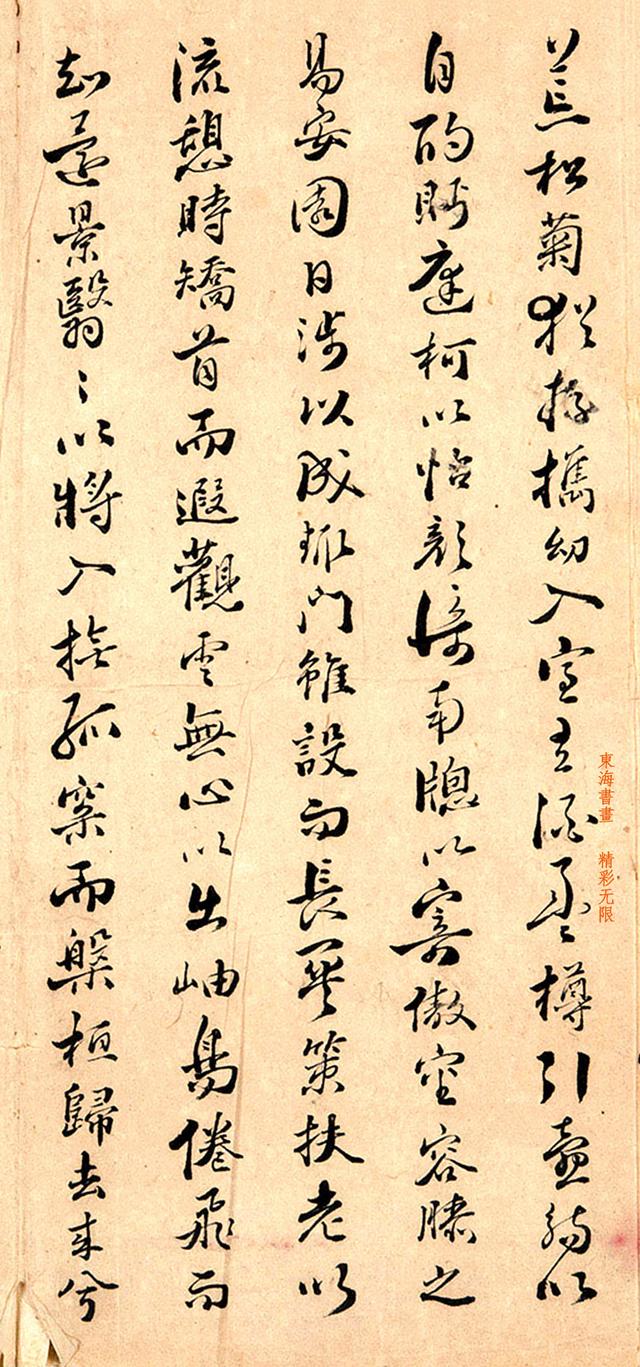 荒松菊猶存攜幼入室有酒盈樽引壺觴以
自酌眄庭柯以怡顏倚南牕以寄傲審容膝之
易安園日涉以成趣門雖設而長關策扶老以
流憩時矯首而遐觀雲無心以出岫鳥倦飛而
知還景翳〻以將入撫孤松而槃桓歸去來兮
東海書畫 精彩无限